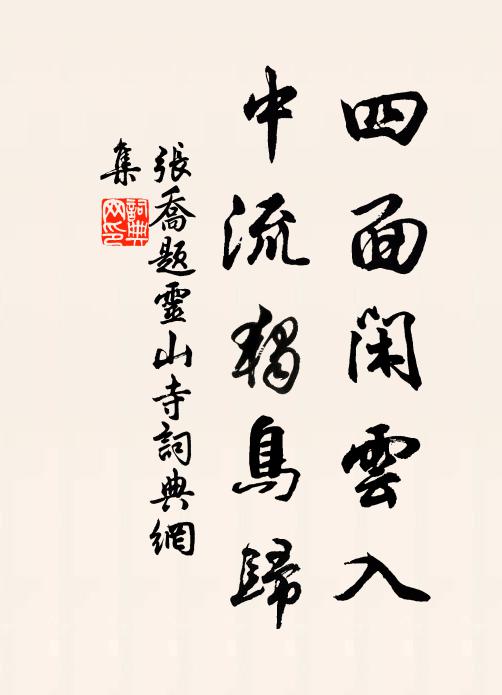 四面閑雲入
中流獨鳥歸
張喬題靈山寺詞典網
集
詞典
网印